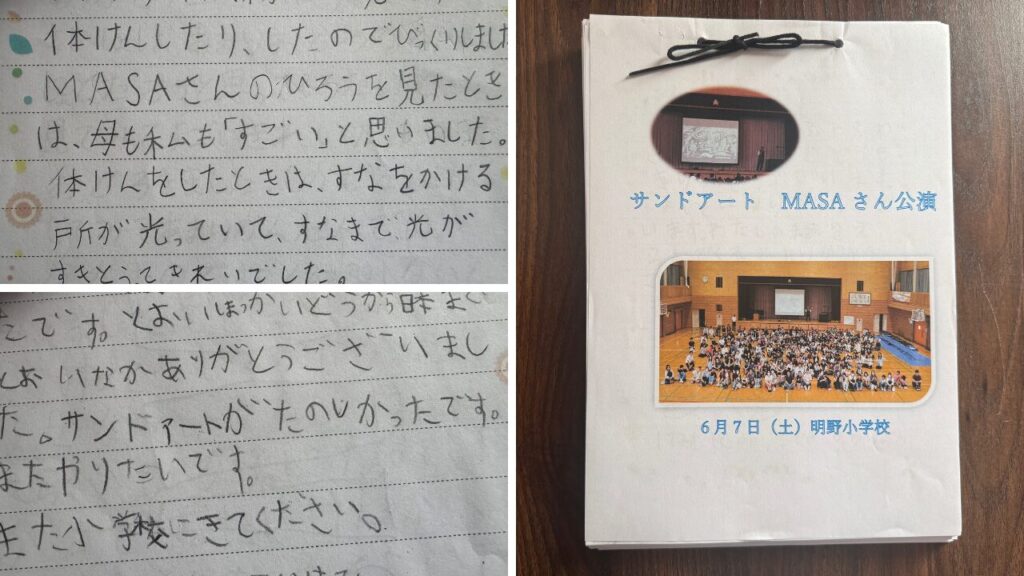 体けんしたり、したのでびっくりしました
MASAさんのひろうを見たとき
は、母も私も「すごい」と思いました。
体けんをしたときは、すなをかける
所が光っていて、すなまで光が
すきとうてきれいでした。
です。とおいほっかいどうから日本
とおいなかありがとうございまし
た。サンドアートがたのしかったです。
またやりたいです。
また小学校にきてください。
サンドアート　MASAさん公演
6月7日（土）明野小学校